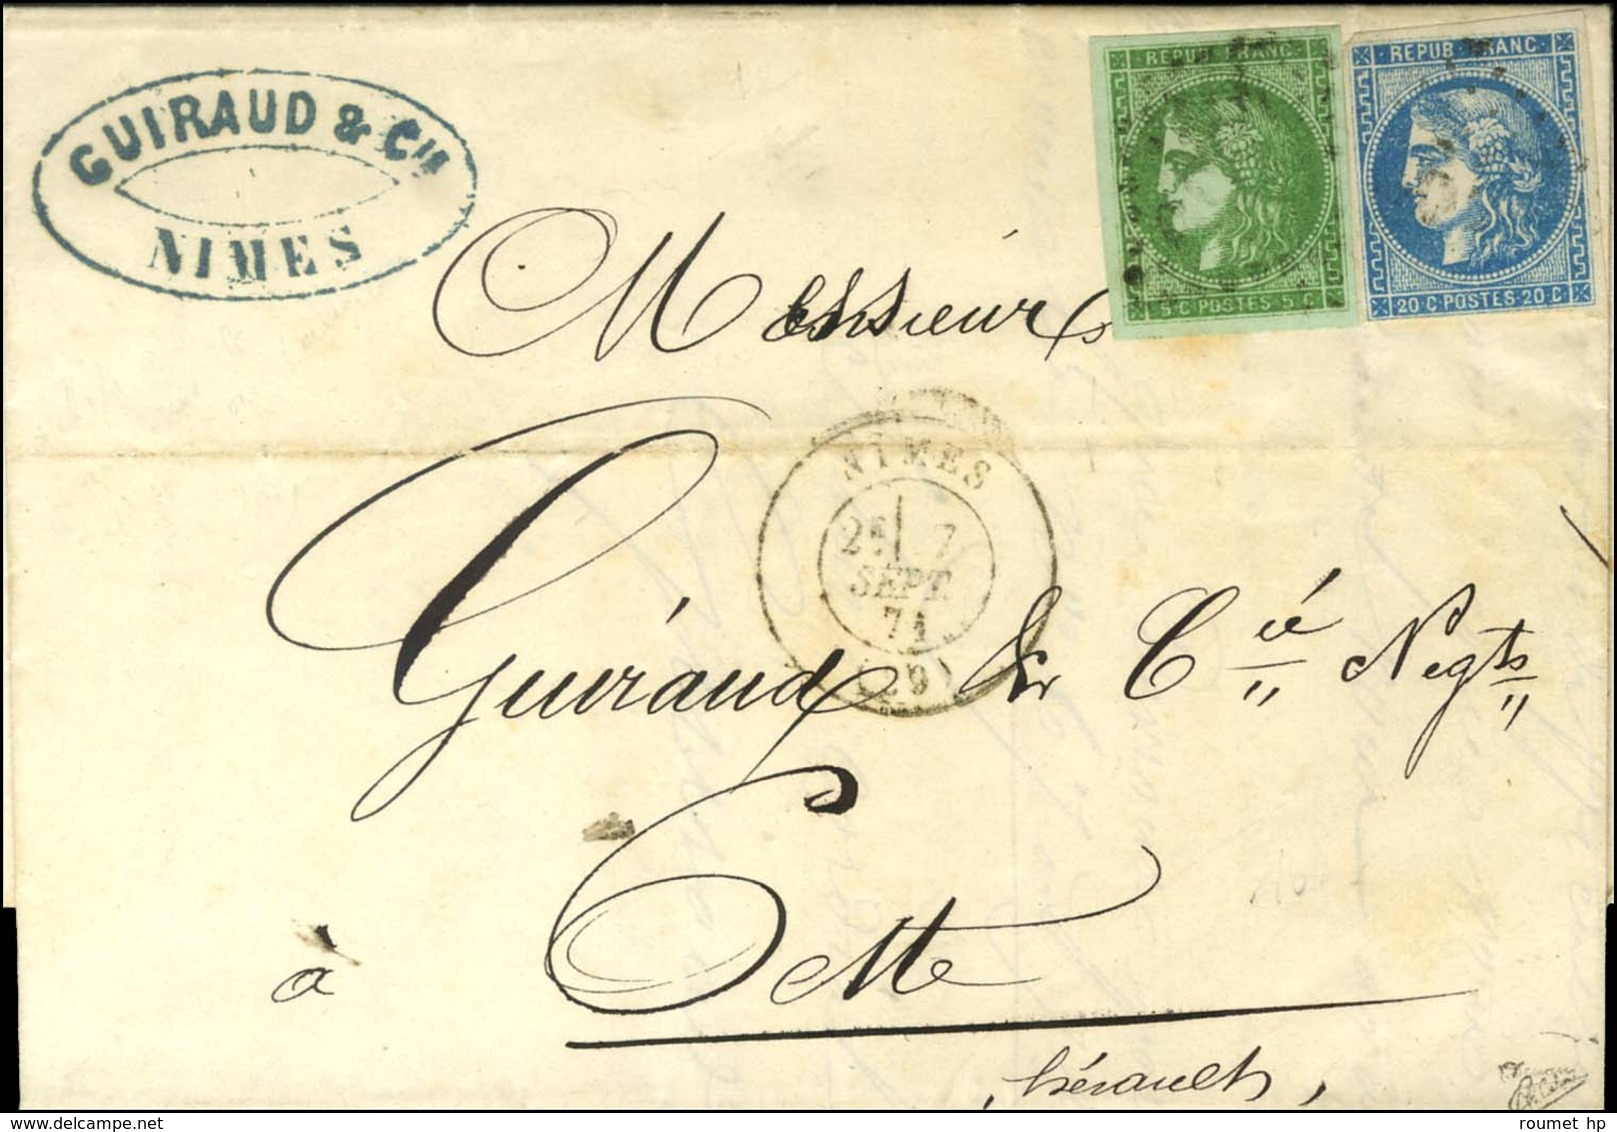 GUIRAUD & Cie
NIMES
REPUB. FRANC.
5 C. POSTES 5 C.
REPUB. FRANC.
20 C. POSTES 20 C.
Messieurs
NIMES
SEPT.
71
(29)
Guiraud & Cie Negts
à Cette
Hérault,
roumet hp